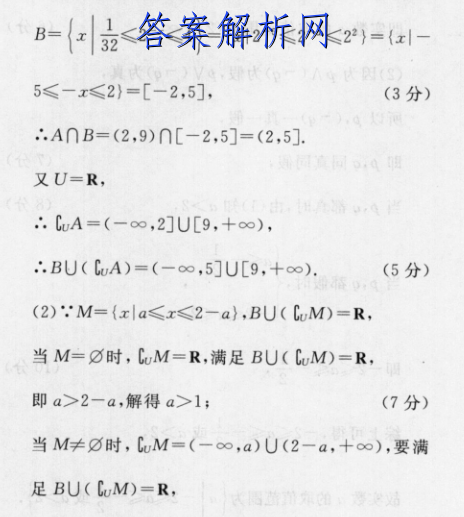 B={x|1/32≤ ≤2²}={x|−
答案解析网
5≤−x≤2}=[−2,5], (3 分)
∴A∩B=(2,9)∩[−2,5]=(2,5].
又U=R,
∴∁UA=(−∞,2]∪[9,+∞),
∴B∪(∁UA)=(−∞,5]∪[9,+∞). (5 分)
(2)∵M={x|a≤x≤2−a},B∪(∁UM)=R,
当M=∅时,∁UM=R,满足B∪(∁UM)=R,
即a>2−a,解得a>1; (7 分)
当M≠∅时,∁UM=(−∞,a)∪(2−a,+∞),要满
足B∪(∁UM)=R,